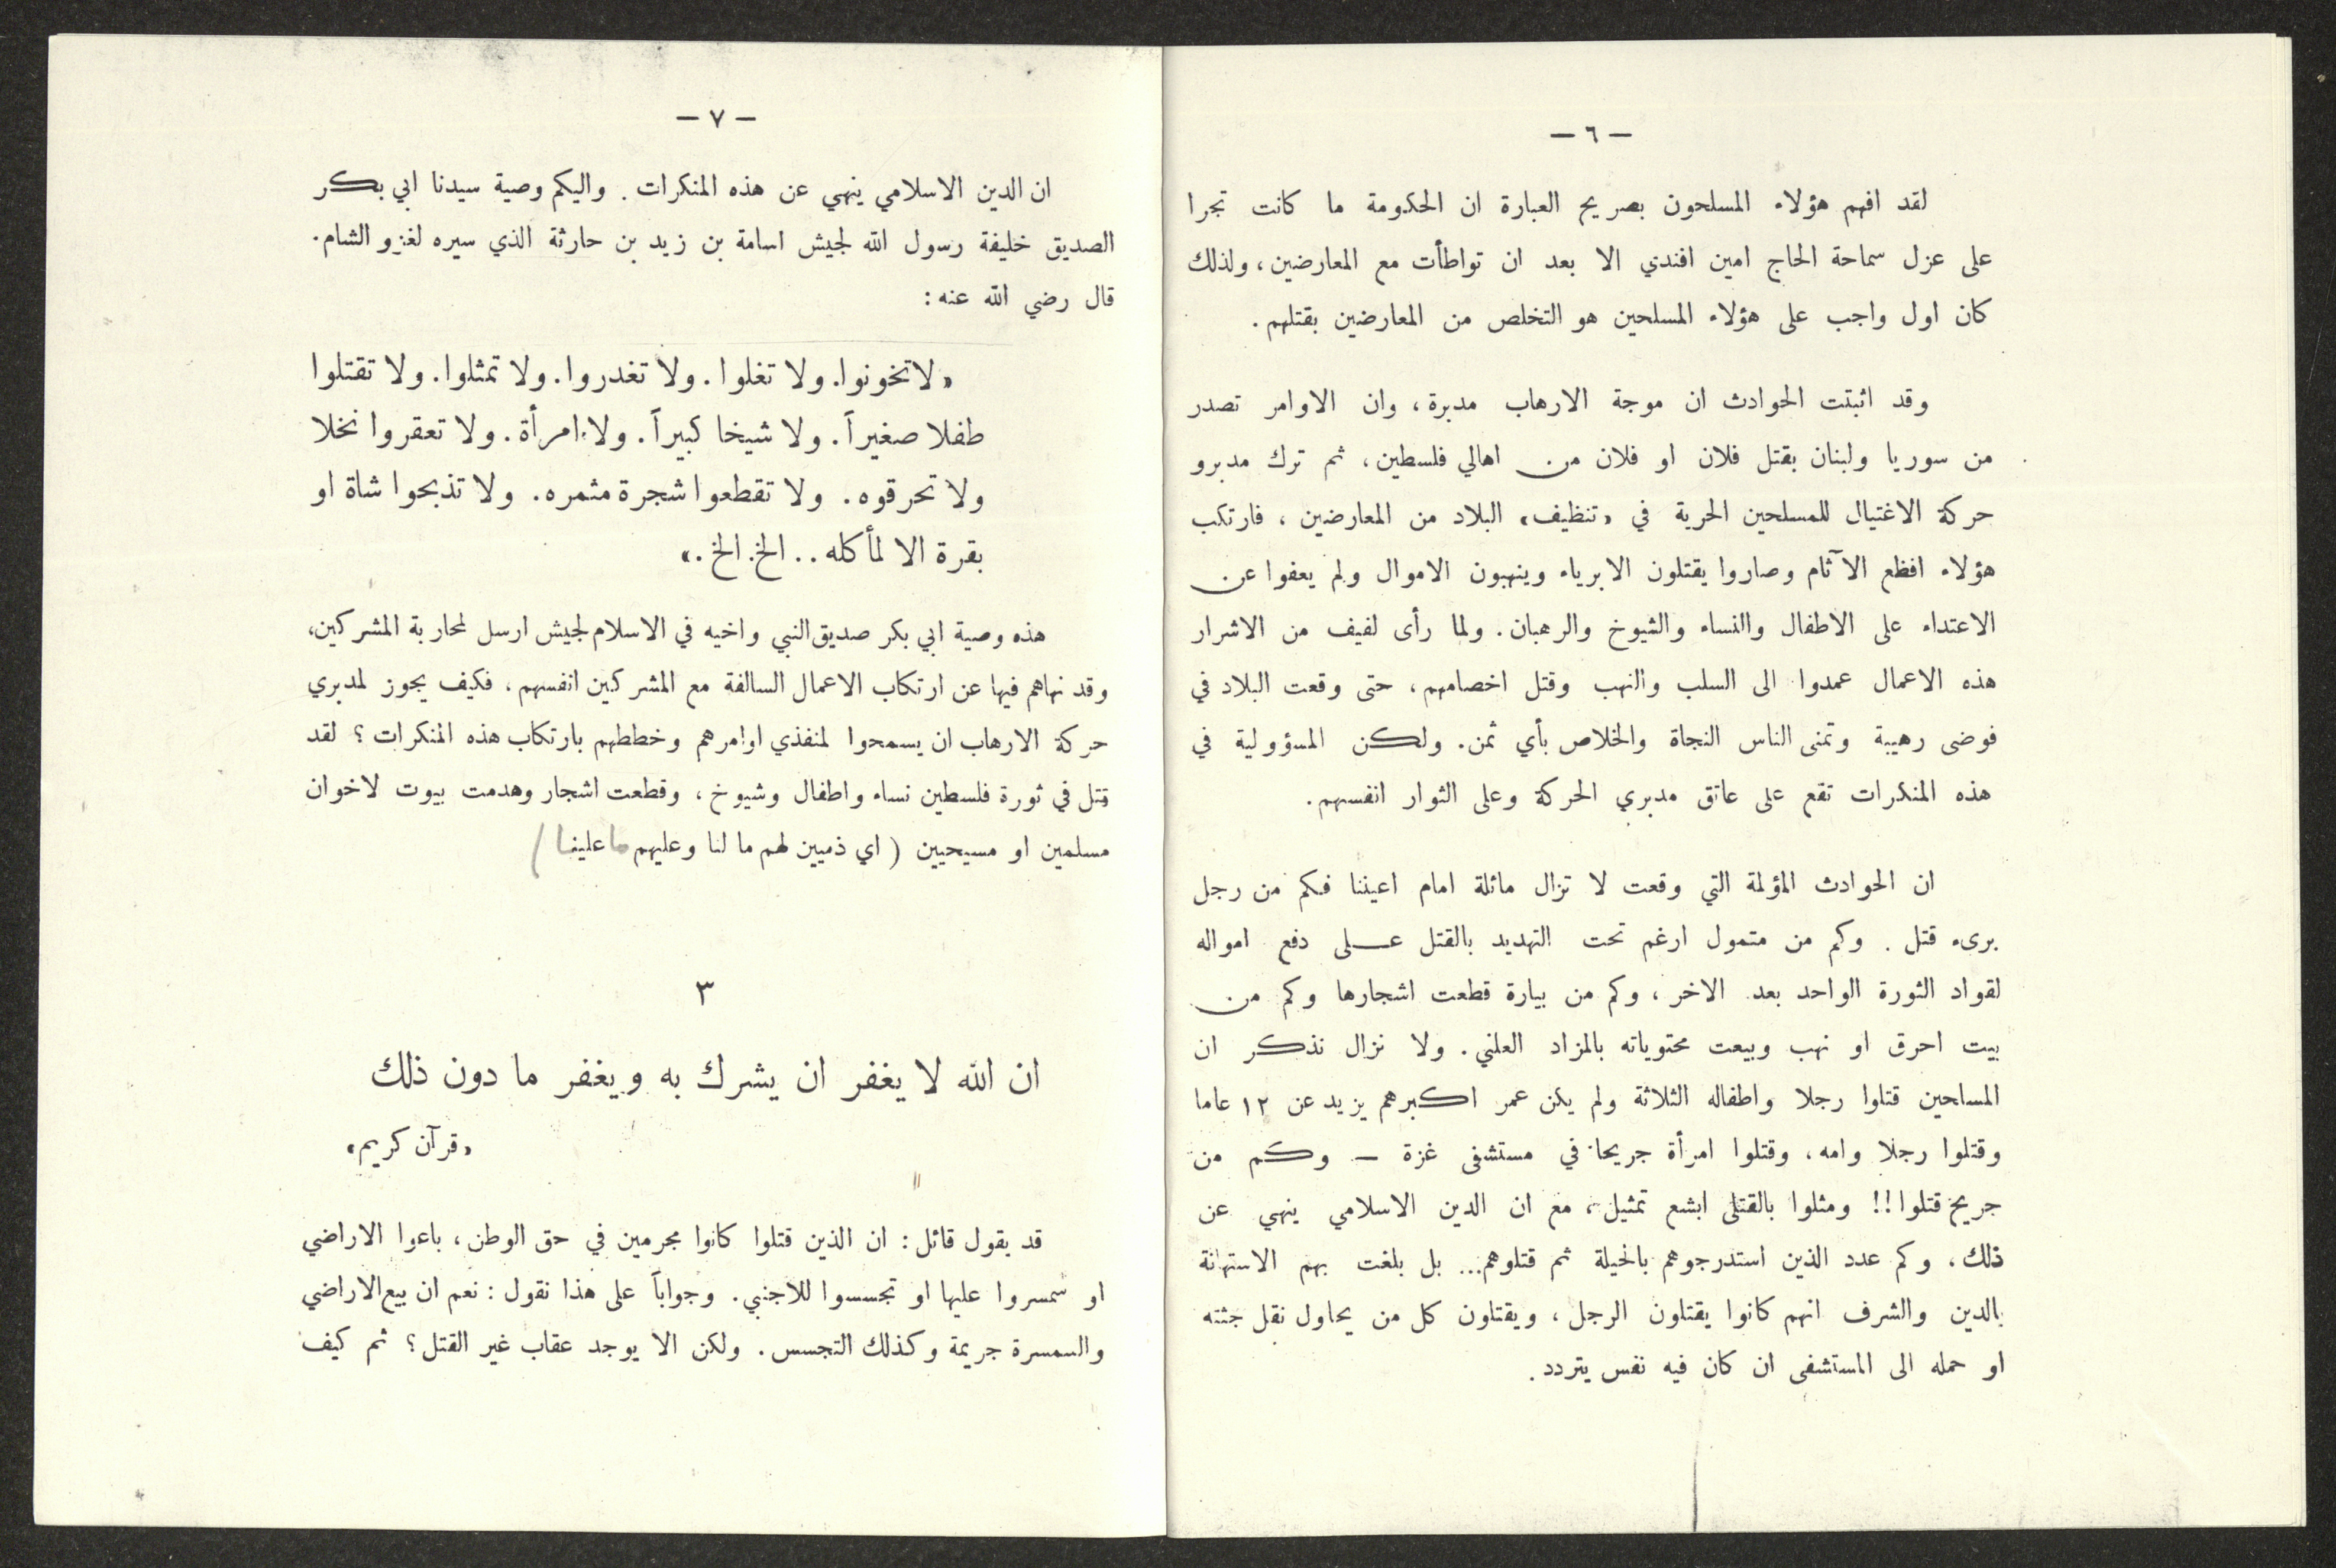 — ٦ —
لقد افهم هؤلاء المسلحون بصريح العبارة ان الحكومة ما كانت تجرا
على عزل سماحة الحاج امين افندي الا بعد ان تواطأت مع المعارضين، ولذلك
كان اول واجب على هؤلاء المسلحين هو التخلص من المعارضين بقتلهم.
وقد اثبتت الحوادث ان موجة الارهاب مدبرة، وان الاوامر تصدر
من سوريا ولبنان بقتل فلان او فلان من اهالي فلسطين، ثم ترك مدبرو
حركة الاغتيال للمسلحين الحرية في «تنظيف» البلاد من المعارضين، فارتكب
هؤلاء افظع الآثام وصاروا يقتلون الابرياء وينهبون الاموال ولم يعفوا عن
الاعتداء على الاطفال والنساء والشيوخ والرهبان. ولما رأى لفيف من الاشرار
هذه الاعمال عمدوا الى السلب والنهب وقتل اخصامهم، حتى وقعت البلاد في
فوضى رهيبة وتمنى الناس النجاة والخلاص بأي ثمن. ولكن المسؤولية في
هذه المنكرات تقع على عاتق مدبري الحركة وعلى الثوار انفسهم.
ان الحوادث المؤلمة التي وقعت لا تزال ماثلة امام اعيننا فكم من رجل
برىء قتل. وكم من متمول ارغم تحت التهديد بالقتل على دفع امواله
لقواد الثورة الواحد بعد الاخر، وكم من بيارة قطعت اشجارها وكم من
بيت احرق او نهب وبيعت محتوياته بالمزاد العلني. ولا نزال نذكر ان
المسلحين قتلوا رجلا واطفاله الثلاثة ولم يكن عمر اكبرهم يزيد عن ١٢ عاما
وقتلوا رجلا وامه، وقتلوا امرأة جريحا في مستشفى غزة — وكم من
جريح قتلوا!! ومثلوا بالقتلى ابشع تمثيل، مع ان الدين الاسلامي ينهي عن
ذلك، وكم عدد الذين استدرجوهم بالحيلة ثم قتلوهم... بل بلغت بهم الاستهانة
بالدين والشرف انهم كانوا يقتلون الرجل، ويقتلون كل من يحاول نقل جثته
او حمله الى المستشفى ان كان فيه نفس يتردد.
— ٧ —
ان الدين الاسلامي ينهي عن هذه المنكرات. واليكم وصية سيدنا ابي بكر
الصديق خليفة رسول الله لجيش اسامة بن زيد بن حارثة الذي سيره لغزو الشام.
قال رضي الله عنه:
«لا تخونوا. ولا تغلوا. ولا تغدروا. ولا تمثلوا. ولا تقتلوا
طفلا صغيراً. ولا شيخا كبيراً. ولا امرأة. ولا تعقروا نخلا
ولا تحرقوه. ولا تقطعوا شجرة مثمره. ولا تذبحوا شاة او
بقرة الا لمأكله.. الخ. الخ.»
هذه وصية ابي بكر صديق النبي واخيه في الاسلام لجيش ارسل لمحاربة المشركين،
وقد نهاهم فيها عن ارتكاب الاعمال السالفة مع المشركين انفسهم، فكيف يجوز لمدبري
حركة الارهاب ان يسمحوا لمنفذي اوامرهم وخططهم بارتكاب هذه المنكرات؟ لقد
قتل في ثورة فلسطين نساء واطفال وشيوخ، وقطعت اشجار وهدمت بيوت لاخوان
مسلمين او مسيحيين (اي ذميين لهم ما لنا وعليهم ما علينا)
٣
ان الله لا يغفر ان يشرك به ويغفر ما دون ذلك
«قرآن كريم»
قد يقول قائل: ان الذين قتلوا كانوا مجرمين في حق الوطن، باعوا الاراضي
او سمسروا عليها او تجسسوا للاجنبي. وجواباً على هذا نقول: نعم ان بيع الاراضي
والسمسرة جريمة وكذلك التجسس. ولكن الا يوجد عقاب غير القتل؟ ثم كيف